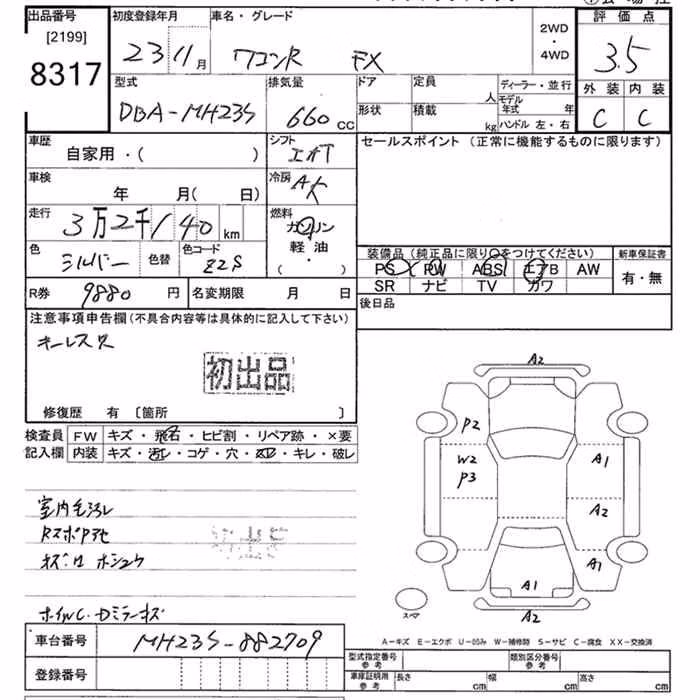 出品番号 初度登録年月 車名・グレード 2WD・4WD 評価点
[2199]
8317 23 11月 ワゴンR FX 3.5
型式 排気量 ドア 定員 人 ディーラー・並行 外装 内装
DBA-MH23S 660 CC 形状 積載 kg モデル年式 年 C C
ハンドル 左・右
車歴 シフト セールスポイント (正常に機能するものに限ります)
自家用・( )
車検 冷房
年 月( 日)
走行 燃料
3万2千140 km ガソリン
色 色替 色コード 軽・油 装備品(純正品に限り○をつけてください) 新車保証書
シルバー Z2S ( ・ ) PS PW ABS エアB AW 有・無
R券 9880円 名変期限 月 日 SR ナビ TV カワ
注意事項申告欄(不具合内容等は具体的に記入して下さい) 後日品
キーレス欠
初出品
修復歴 有 〔箇所 〕
検査員 FW キズ・飛石・ヒビ割・リペア跡・×要
記入欄 内装 キズ・汚レ・コゲ・穴・・キレ・破レ
A2
P2
W2 A1
P3
A2
A1
A1
スペア A2
室内毛汚レ
初出品
ホイルC・Dミラーキズ
A-キズ E-エクボ U-凹み W-補修跡 S-サビ C-腐食 XX-交換済
車台番号 MH23S-882709
登録番号
型式指定番号 参考 類別区分番号 参考
車庫証明用 参考 長さ cm 幅 cm 高さ cm